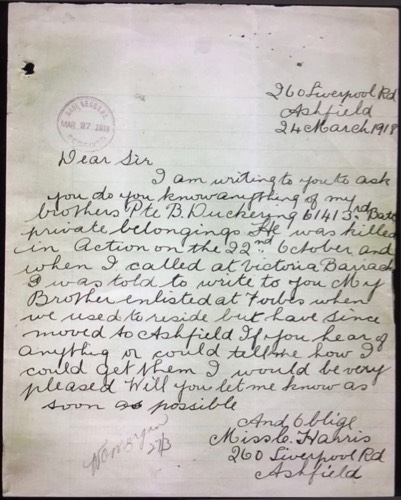 260 Liverpool Rd
Ashfield
24 March 1918
MAR 27 1918
RECORDS
Dear Sir
I am writing to you to ask
you do you know anything of my
brothers Pte B. Duckering 6141 3rd Batt
private belongings He was killed
in Action on the 22nd October and
when I called at Victoria Barracks
I was told to write to you My
Brother enlisted at Forbes when
we used to reside but have since
moved to Ashfield If you hear of
anything or could tell me how I
could get them I would be very
pleased Will you let me know as
soon as possible
And Oblige
Miss C. Harris
260 Liverpool Rd
Ashfield
27/3